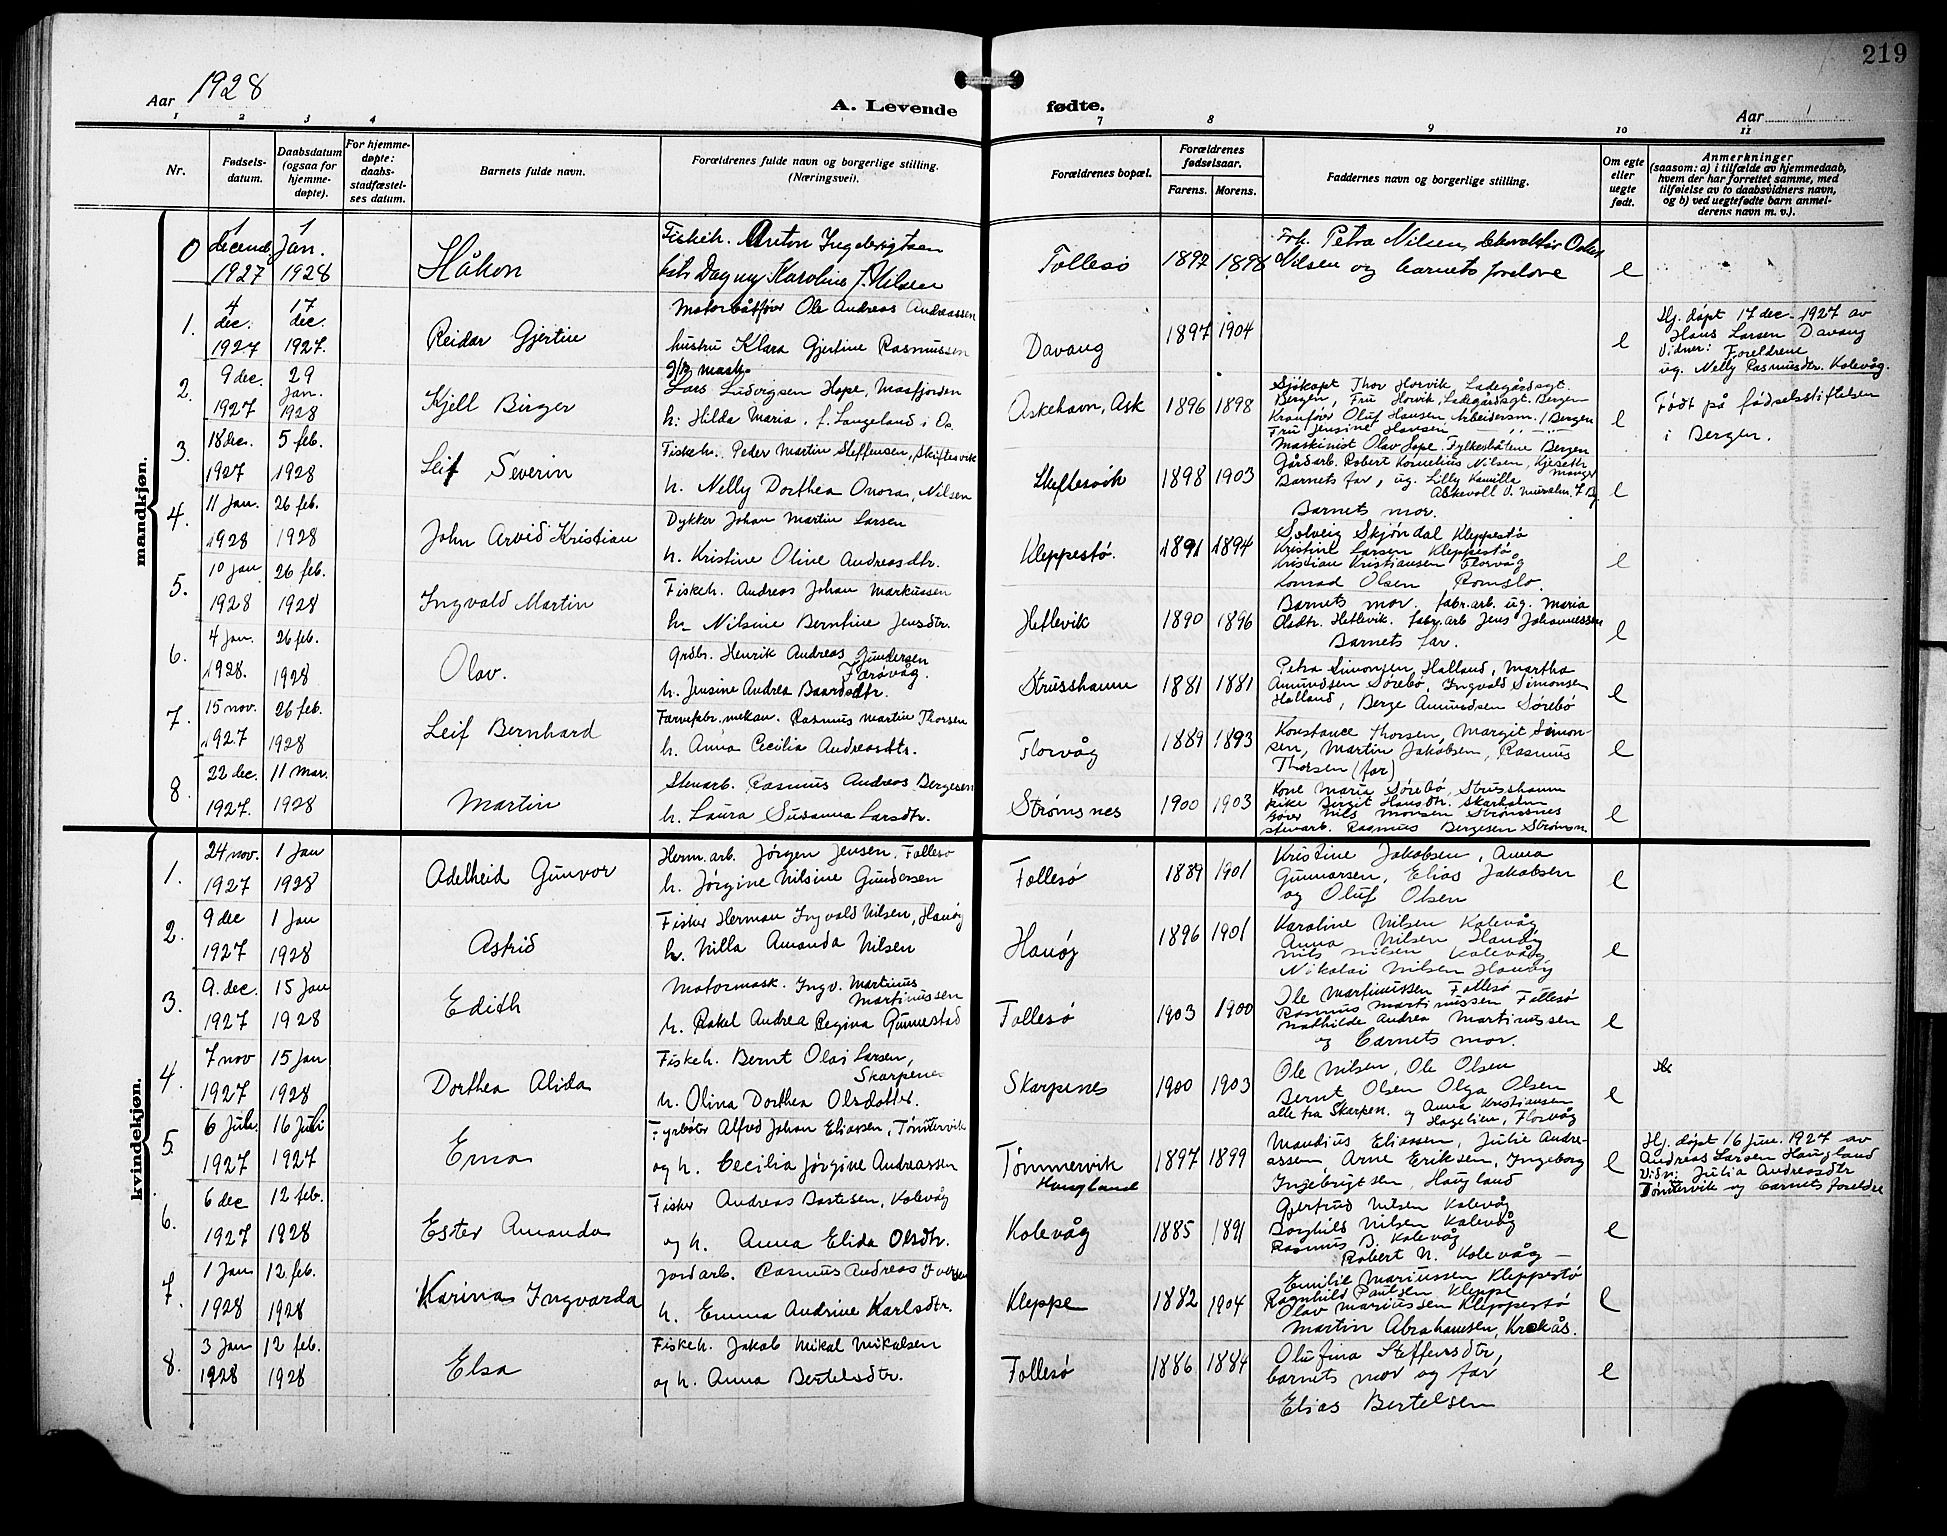 219
Aar 1928
A. Levende fødte.
Aar
1 2 3 4 7 8 9 10 11
Nr.
Fødsels-
datum.
Daabsdatum
(ogsaa for
hjemme-
døpte).
For hjemme-
døpte:
daabs-
stadfæstel-
ses datum.
Barnets fulde navn.
Forældrenes fulde navn og borgerlige stilling.
(Næringsvei).
Forældrenes bopæl.
Forældrenes
fødselsaar.
Farens. Morens.
Faddernes navn og borgerlige stilling.
Om egte
eller
uegte
født.
Anmerkninger
(saasom: a) i tilfælde av hjemmedaab,
hvem der har forrettet samme, med
tilføielse av to daabsvidners navn,
og b) ved uegtefødte barn anmel-
derens navn m. v.).
mandkjøn.
0
1 decemb. 1927
1 Jan. 1928
Håkon
Fiskeh. Anton Ingebrigtsen
Dagny Karoline f. Nilsen
Follesø
1897 1898
Frk. Petra Nilsen,
Nilsen og barnets foreldre
e
1.
4 dec. 1927
17 dec. 1927.
Reidar Gjertin
Motorbåtfør Ole Andreas Andreassen
hustru Klara Gjertine Rasmussen
Davang
1897 1904
e
Hj. døpt 17 dec. 1927 av
Hans Larsen Davang
Vidner: Foreldrene
ug. Nelly Rasmusdtr. Kolevåg.
2.
9 dec. 1927
29 Jan. 1928
Kjell Birger
Lars Ludvigsen Hope, Masfjorden
h. Hilda Maria, f. Langeland i Os.
Askehavn, Ask
1896 1898
Sjökapt Thor Horvik Ladegårdsgt.
Bergen, Fru Horvik, Ladegårdsgt. Bergen
Kranfører Oluf Hansen Arbeidersm. / Bergen
Fru Jensine Hansen
Maskinist Olav Hope Fylkesbåtene Bergen
e
Født på fødselsstiftelsen
i Bergen.
3.
18 dec. 1927
5 feb. 1928
Leif Severin
Fiskeh. Peder Martin Steffensen, Skiftesvik
h. Nelly Dorthea Onora Nilsen
Skiftesvik
1898 1903
Gårdarb. Robert Kornelius Nilsen,
Manger
Barnets far, ug. Lilly Kamilla
Barnets mor.
e
4.
11 Jan. 1928
26 feb. 1928
John Arvid Kristian
Dykker Johan Martin Larsen
h. Kristine Oline Andreasdtr.
Kleppestø.
1891 1894
Solveig Skjøndal Kleppestø
Kristine Larsen Kleppestø
Kristian Kristiansen Florvåg
Konrad Olsen Romslo.
e
5.
10 Jan 1928
26 feb. 1928
Ingvald Martin
Fiskeh. Andreas Johan Markussen
h. Nilsine Berntine Jensdtr.
Hetlevik
1890 1896
Barnets mor. fabr.arb. ug. Maria
Olsdtr. Hetlevik. fabr.arb Jens Johannessen
Barnets far.
e
6.
4 Jan. 1928.
26 feb. 1928
Olav.
Grdbr. Henrik Andreas Gundersen
Færøvåg.
h. Jensine Andrea Baardsdtr.
Strusshamn
1881 1881
Petra Simonsen, Halland, Martha
Amundsen Sørebø, Ingvald Simonsen
Halland, Berge Amundsen Sørebø
e
7.
15 nov. 1927
26 feb. 1928
Leif Bernhard
Rasmus Martin Thorsen
h. Anna Cecilia Andreasdtr.
Florvåg
1889 1893
Konstance Thorsen, Margit Simon-
sen, Martin Jakobsen, Rasmus
Thorsen (far)
e
8.
22 dec. 1927.
11 mar. 1928
Martin
Stenarb. Rasmus Andreas Bergesen
h. Laura Susanna Larsdtr.
Strømsnes
1900 1903
Kone Maria Sørebø, Strusshamn
pike Birgit Hansdtr. Skarholm
Nils Monsen Strømsnes
stenarb. Rasmus Bergesen Strømsn.
e
kvindekjøn.
1.
24 nov. 1927
1 Jan 1928
Adelheid Gunvor
Herm.arb. Jørgen Jensen, Follesø
h. Jørgine Nilsine Gundersen
Follesø
1889 1901
Kristine Jakobsen, Anna
Gunnarsen, Elias Jakobsen
og Oluf Olsen
e
2.
9 dec 1927
1 Jan 1928
Astrid
Fisker Herman Ingvald Nilsen, Hanøy
h. Nilla Amanda Nilsen
Hanøy
1896 1901
Karoline Nilsen Kolevåg
Anna Nilsen Hanøy
Nils Nilsen Kolevåg,
Nikolai Nilsen Hanøy
e
3.
9. dec. 1927
15 Jan 1928
Edith
Motormask. Ingv. Martinus
Martinussen
h. Rakel Andrea Regina Gunnestad
Follesø
1903 1900
Ole Martinussen Follesø
Rasmus Martinussen Follesø
Mathilde Andrea Martinussen
og barnets mor.
e
4.
7 nov 1927
15 Jan 1928
Dorthea Alida
Fiskeh. Bernt Olai Larsen,
Skarpenes
h. Olina Dorthea Olsdotter.
Skarpenes
1900 1903
Ole Nilsen, Ole Olsen
Bernt Olsen Olga Olsen
alle fra Skarpen. og Anna Kristiansen
Hagelien, Florvåg
e
5.
6 Juli. 1927
16 Juli 1927
Erna
Fyrbøter Alfred Johan Eliassen, Tømmervik
og h. Cecilia Jørgine Andreassen
Tømmervik
Haugland
1897 1899
Mandius Eliassen, Julie Andre-
assen Arne Eriksen, Ingeborg
Ingebrigtsen, Haugland
e
Hj. døpt 16 Jun. 1927 av
Andreas Larsen Haugland
Vidn: Julia Andreasdtr
Tømmervik og barnets foreldre
6.
6 dec 1927
12 feb. 1928
Ester Amanda
Fisker Andreas Bastesen, Kolevåg
og h. Anna Elida Olsdtr.
Kolevåg
1885 1891
Gjertrud Nilsen Kolevåg
Borghild Nilsen Kolevåg
Rasmus B. Kolevåg
Robert N. Kolevåg —
e
7.
1 Jan 1928
12 feb. 1928
Karina Ingvarda
Jordarb. Rasmus Andreas Iversen
h. Emma Andrine Karlsdtr.
Kleppe
1882 1904
Emilie Mariussen Kleppestø
Ragnhild Paulsen Kleppe
Olav Mariussen Kleppestø
Martin Abrahamsen, Krokås.
e
8.
3 Jan 1928
12 feb. 1928
Elsa
Fiskeh. Jakob Mikal Mikalsen
og h. Anna Bertelsdtr.
Follesø
1886 1884
Olufina Steffensdtr,
barnets mor og far
Elias Bertelsen
e